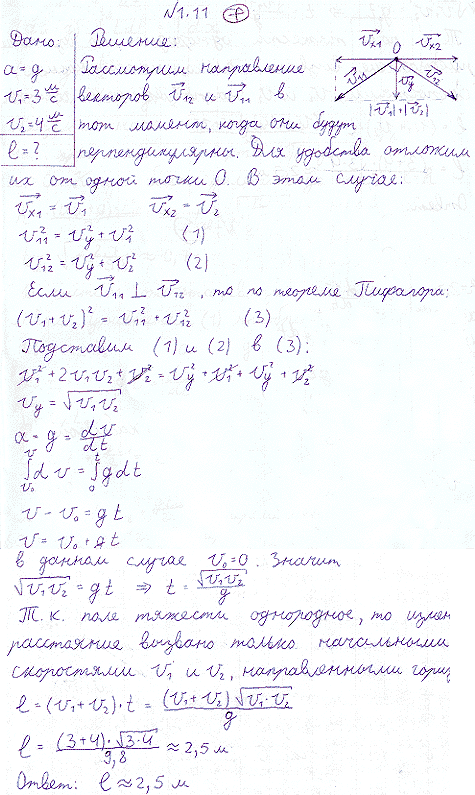 №1.11 (+)
Дано: Решение:
a = g Рассмотрим направление
v₁ = 3 м/с векторов v⃗₁₂ и v⃗₁₁ в
v₂ = 4 м/с тот момент, когда они будут
l = ? перпендикулярны. Для удобства отложим
их от одной точки O. В этом случае:
v⃗ₓ₁ O v⃗ₓ₂
v⃗₁₁ v⃗y
|v⃗₁|+|v⃗₂|
v⃗ₓ₁ = v⃗₁ v⃗ₓ₂ = v⃗₂
v₁₁² = vy² + v₁² (1)
v₁₂² = vy² + v₂² (2)
Если v⃗₁₁ ⊥ v⃗₁₂, то по теореме Пифагора:
(v₁ + v₂)² = v₁₁² + v₁₂² (3)
Подставим (1) и (2) в (3):
v₁² + 2v₁v₂ + v₂² = vy² + v₁² + vy² + v₂²
vy = √(v₁v₂)
a = g = dv/dt
∫_{v₀}^{v} dv = ∫_{0}^{t} g dt
v - v₀ = gt
v = v₀ + gt
в данном случае v₀ = 0. Значит
√(v₁v₂) = gt ⇒ t = √(v₁v₂)/g
Т.к. поле тяжести однородное, то измен
расстояние вызвано только начальными
скоростями v₁ и v₂, направленными гориз
l = (v₁ + v₂)·t = (v₁ + v₂)√(v₁·v₂)/g
l = (3+4)·√(3·4)/9,8 ≈ 2,5 м
Ответ: l ≈ 2,5 м